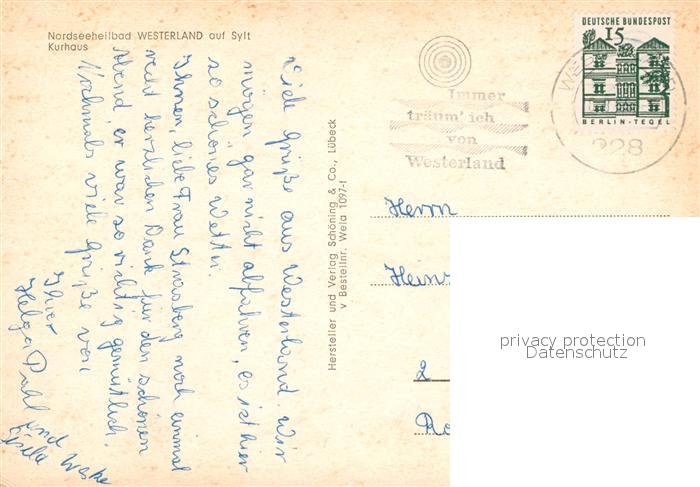 Nordseeheilbad WESTERLAND auf Sylt
Kurhaus
Viele Grüße aus Westerland. Wir
mögen gar nicht abfahren, es ist hier
so schönes Wetter.
Ihnen, liebe Frau Strasberg noch einmal
recht herzlichen Dank für den schönen
Abend, er war so richtig gemütlich.
Nochmals viele Grüße von
Ihrer
Helga Pahl
und
Hersteller und Verlag Schöning & Co., Lübeck
v Bestellnr. Wela 1097-f
Immer
träum' ich
von
Westerland
DEUTSCHE BUNDESPOST
15
BERLIN-TEGEL
WE
228
Herrn
Hein
2
Ro
privacy protection
Datenschutz